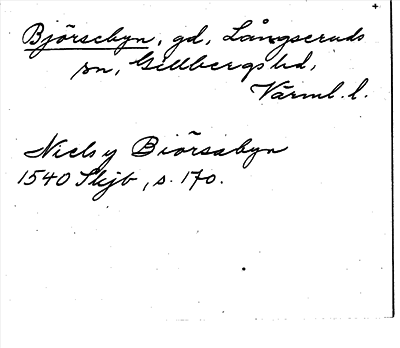 Björsebyn, gd, Långseruds
sn, Gillbergs hd,
Värml. l.
Niels y Biörsabyn
1540 Skjb, s. 170.